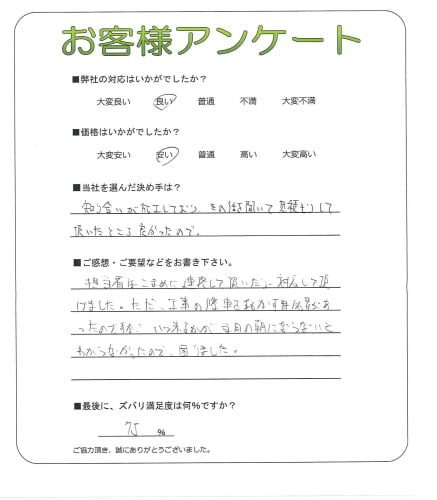 お客様アンケート
■弊社の対応はいかがでしたか?
大変良い 良い 普通 不満 大変不満
■価格はいかがでしたか?
大変安い 安い 普通 高い 大変高い
■当社を選んだ決め手は?
知り合いが施工しており、その後聞いて見積もりして
頂いたところ良かったので。
■ご感想・ご要望などをお書き下さい。
担当者はこまめに連絡して頂いたり、対応して頂
けました。ただ、工事の際車を動かす必要があ
ったのですが、いつ来るかが当日の朝にならないと
わからなかったので、困りました。
■最後に、ズバリ満足度は何%ですか?
75 %
ご協力頂き、誠にありがとうございました。